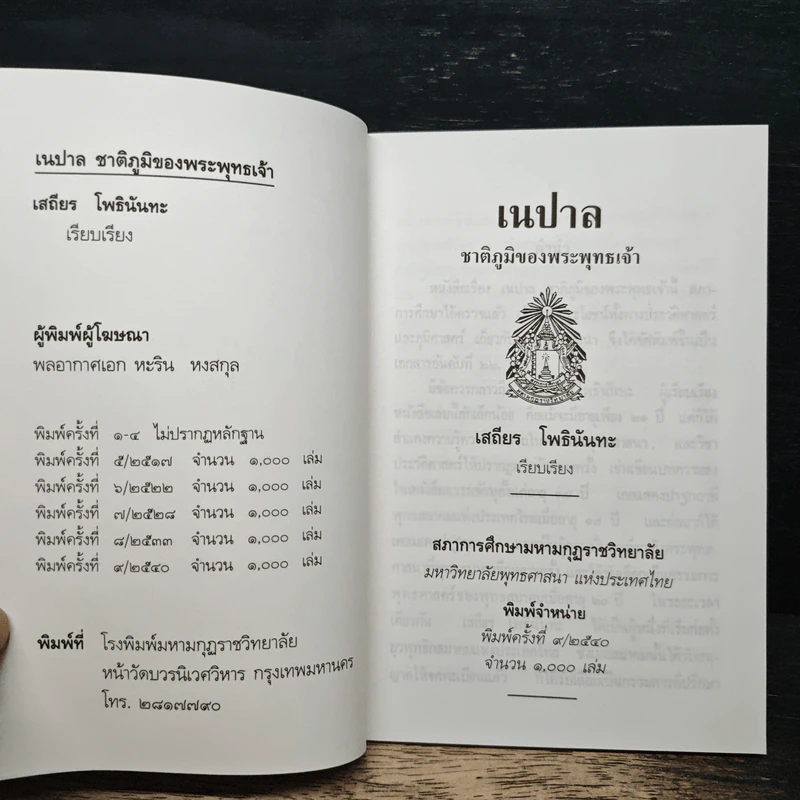 เนปาล ชาติภูมิของพระพุทธเจ้า
เสถียร โพธินันทะ
เรียบเรียง
ผู้พิมพ์ผู้โฆษณา
พลอากาศเอก หะริน หงสกุล
พิมพ์ครั้งที่ ๑-๔ ไม่ปรากฏหลักฐาน
พิมพ์ครั้งที่ ๕/๒๕๑๗ จำนวน ๑,๐๐๐ เล่ม
พิมพ์ครั้งที่ ๖/๒๕๒๒ จำนวน ๑,๐๐๐ เล่ม
พิมพ์ครั้งที่ ๗/๒๕๒๘ จำนวน ๑,๐๐๐ เล่ม
พิมพ์ครั้งที่ ๘/๒๕๓๓ จำนวน ๑,๐๐๐ เล่ม
พิมพ์ครั้งที่ ๙/๒๕๔๐ จำนวน ๑,๐๐๐ เล่ม
พิมพ์ที่ โรงพิมพ์มหามกุฏราชวิทยาลัย
หน้าวัดบวรนิเวศวิหาร กรุงเทพมหานคร
โทร. ๒๘๑๗๗๙๐
เนปาล
ชาติภูมิของพระพุทธเจ้า
เสถียร โพธินันทะ
เรียบเรียง
สภาการศึกษามหามกุฏราชวิทยาลัย
มหาวิทยาลัยพุทธศาสนา แห่งประเทศไทย
พิมพ์จำหน่าย
พิมพ์ครั้งที่ ๙/๒๕๔๐
จำนวน ๑,๐๐๐ เล่ม